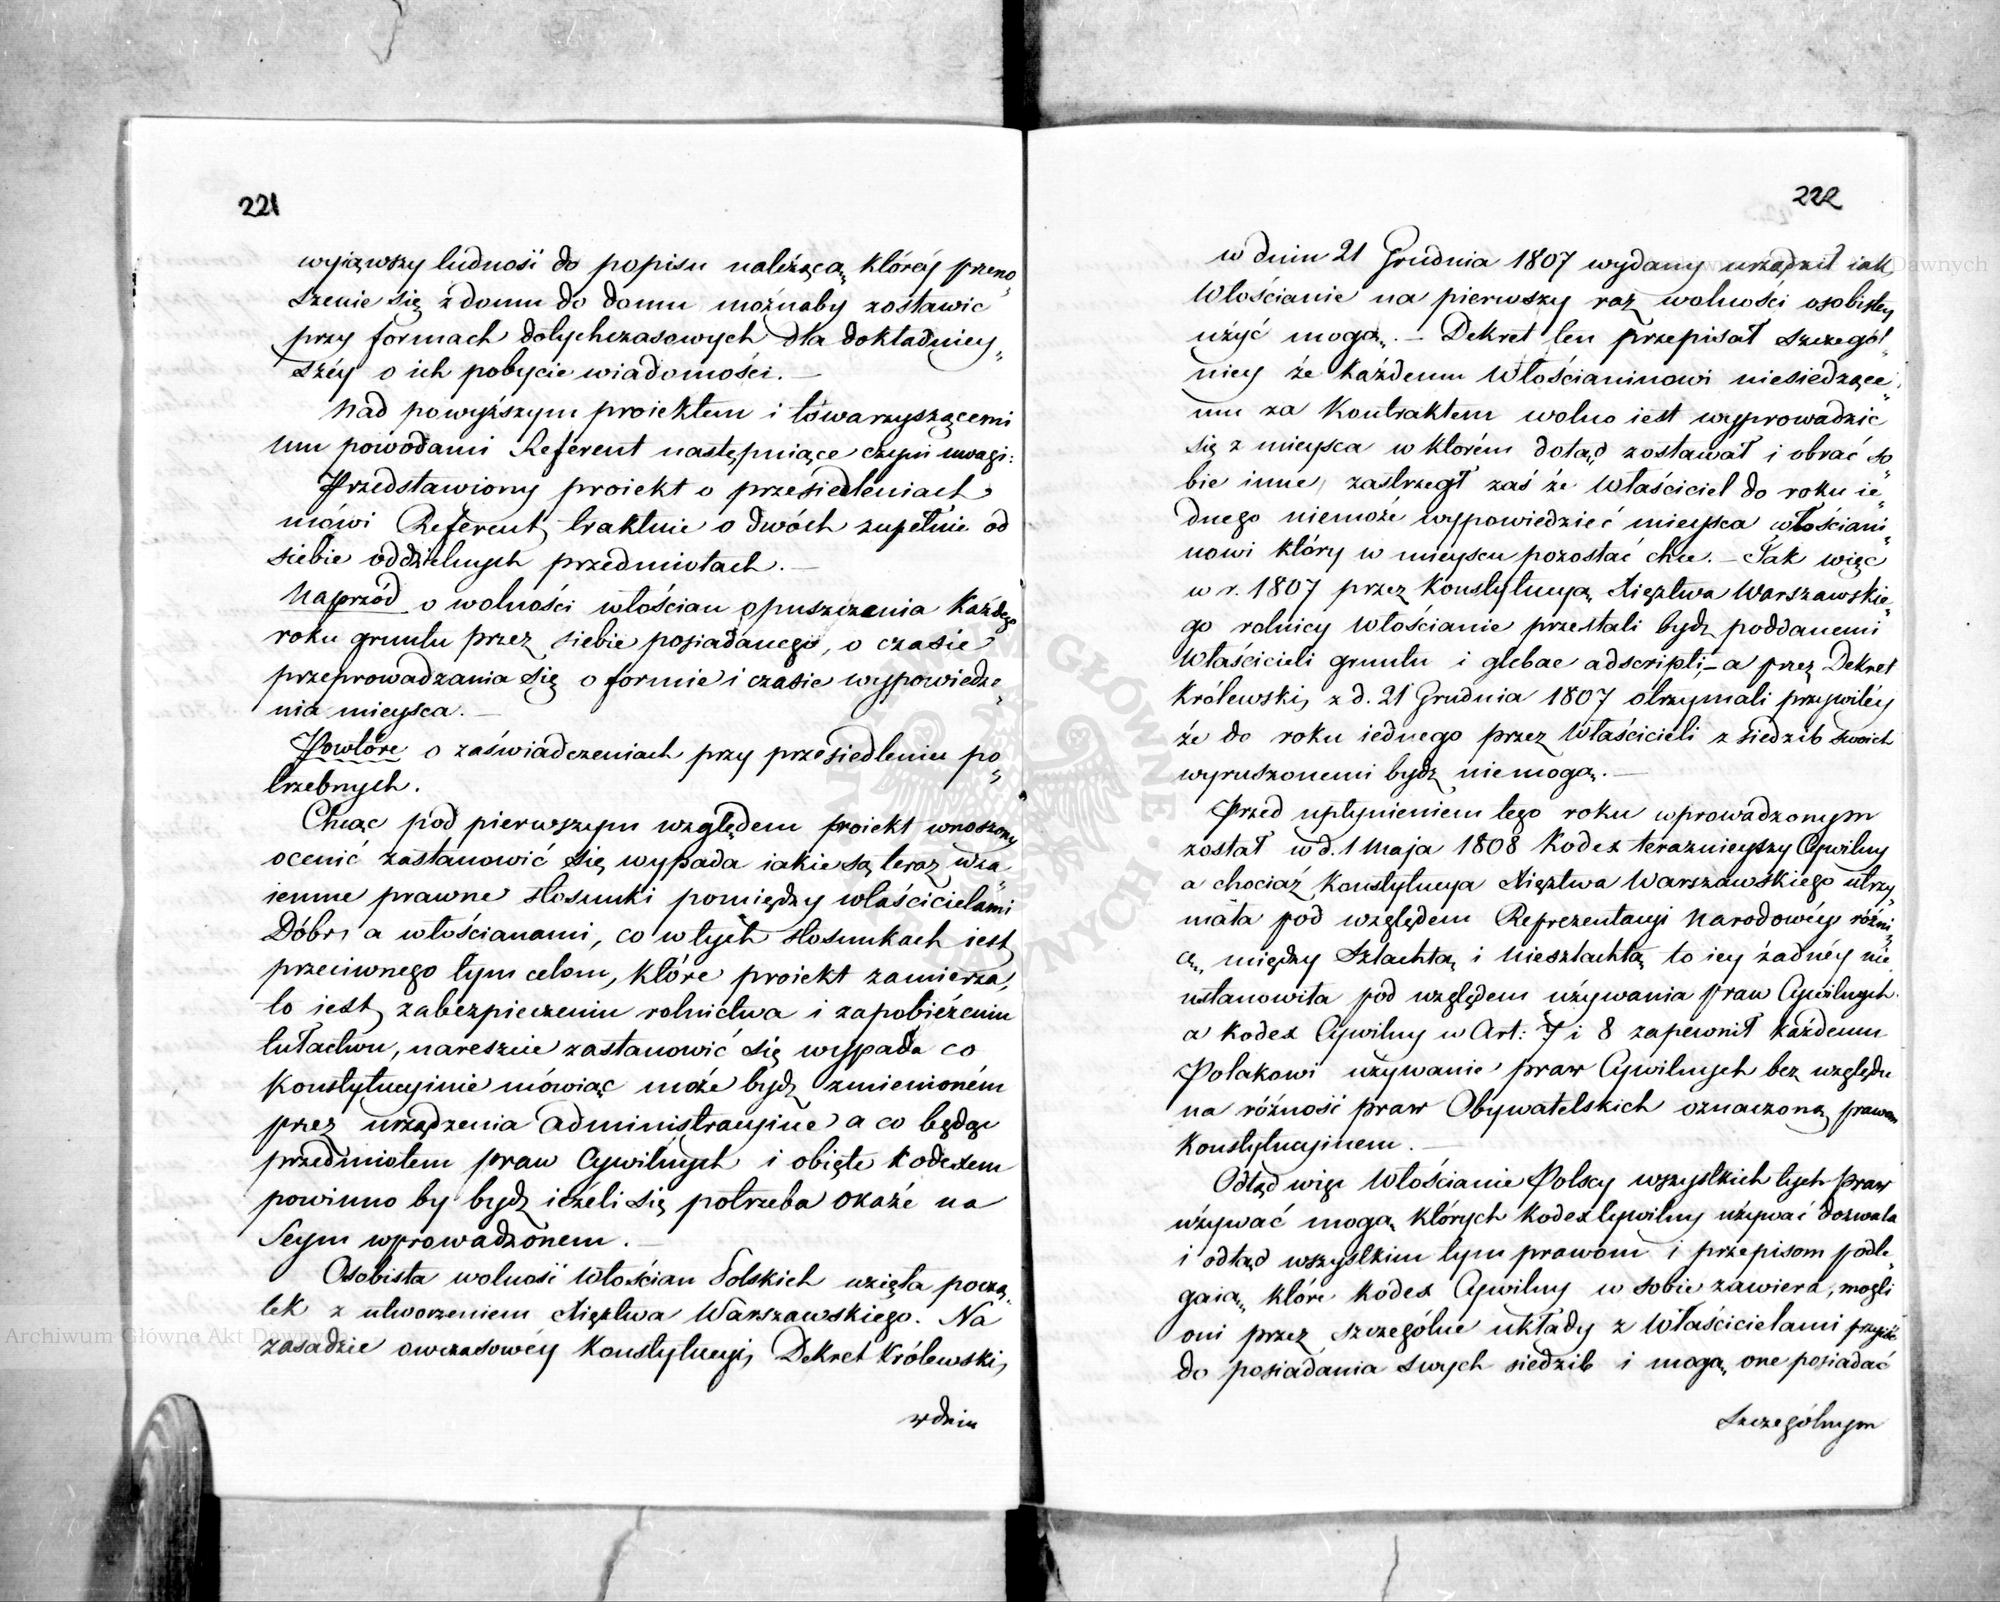 221
wyiąwszy ludność do popisu należącą, któréy przeno„
szenie się z domu do domu możnaby zostawić
przy formach dotychczasowych dla dokładniey„
széy o ich pobycie wiadomości. —
Nad powyższym proiektem i towarzyszącemi
mu powodami Referent następuiące czyni uwagi:
Przedstawiony proiekt o przesiedleniach
mówi Referent, traktuie o dwóch zupełnie od
siebie oddzielnych przedmiotach. —
Naprzód o wolności włościan opuszczenia każdego
roku gruntu przez siebie posiadanego, o czasie
przeprowadzania się o formie i czasie wypowiedze„
nia mieysca. —
Powtóre o zaświadczeniach przy przesiedleniu po„
trzebnych.
Chcąc pod pierwszym względem proiekt wnoszony
ocenić zastanowić się wypada iakie są teraz wza„
iemne prawne stosunki pomiędzy właścicielami
Dóbr, a włościanami, co w tych stosunkach iest
przeciwnego tym celom, które proiekt zamierza,
to iest, zabezpieczeniu rolnictwa i zapobieżeniu
tułactwu, nareszcie zastanowić się wypada co
konstytucyinie mówiąc może bydź zmienioném
przez urządzenia administracyine a co będąc
przedmiotem praw Cywilnych i obięte kodexem
powinno by bydź ieżeli się potrzeba okaże na
Seym wprowadzonem. —
Osobista wolność Włościan Polskich wzięła począ„
tek z utworzeniem Xięztwa Warszawskiego. Na
zasadzie owczasowéy Konstytucyi, Dekret Królewski,
w dniu
222
w dniu 21 Grudnia 1807 wydany urządził iak
Włościanie na pierwszy raz wolności osobistey
użyć mogą. — Dekret ten przepisał szczegól„
niey że każdemu Włościaninowi niesiedzące„
mu za kontraktem wolno iest wyprowadzić
się z mieysca w którém dotąd zostawał i obrać so„
bie inne, zastrzegł zaś że Właściciel do roku ie„
dnego niemoże wypowiedzieć mieysca włościani„
nowi który w mieyscu pozostać chce. — Tak więc
w r. 1807 przez Konstytucyą Xięztwa Warszawskie„
go rolnicy Włościanie przestali bydź poddanemi
Właścicieli gruntu i glebae adscripti, — a przez Dekret
Królewski, z d. 21 Grudnia 1807 otrzymali przywiléy
że do roku iednego przez Właścicieli z siedzib swoich
wyruszonemi bydź niemogą. —
Przed upłynieniem tego roku wprowadzonym
został w d. 1 Maja 1808 Kodex terazniejszy Cywilny
a chociaż Konstytucya Xięztwa Warszawskiego utrzy„
mała pod względem Reprezentacyi Narodowéy różni„
cę, między Szlachtą i Nieszlachtą to iey żadnéy nie
ustanowiła pod względem używania praw Cywilnych.
a Kodex Cywilny w Art: 7 i 8 zapewnił każdemu
Polakowi używanie praw Cywilnych bez względu
na różność praw Obywatelskich oznaczoną prawem
Konstytucyinem. —
Odtąd więc Włościanie Polscy wszystkich tych praw
używać mogą, których Kodex Cywilny używać dozwala
i odtąd wszystkim tym prawom i przepisom podle„
gaią, które Kodex Cywilny w sobie zawiera, mogli
oni przez szczególne układy z Właścicielami przyiść
do posiadania swych siedzib i mogą one posiadać
szczególnym
Archiwum Główne Akt Dawnych